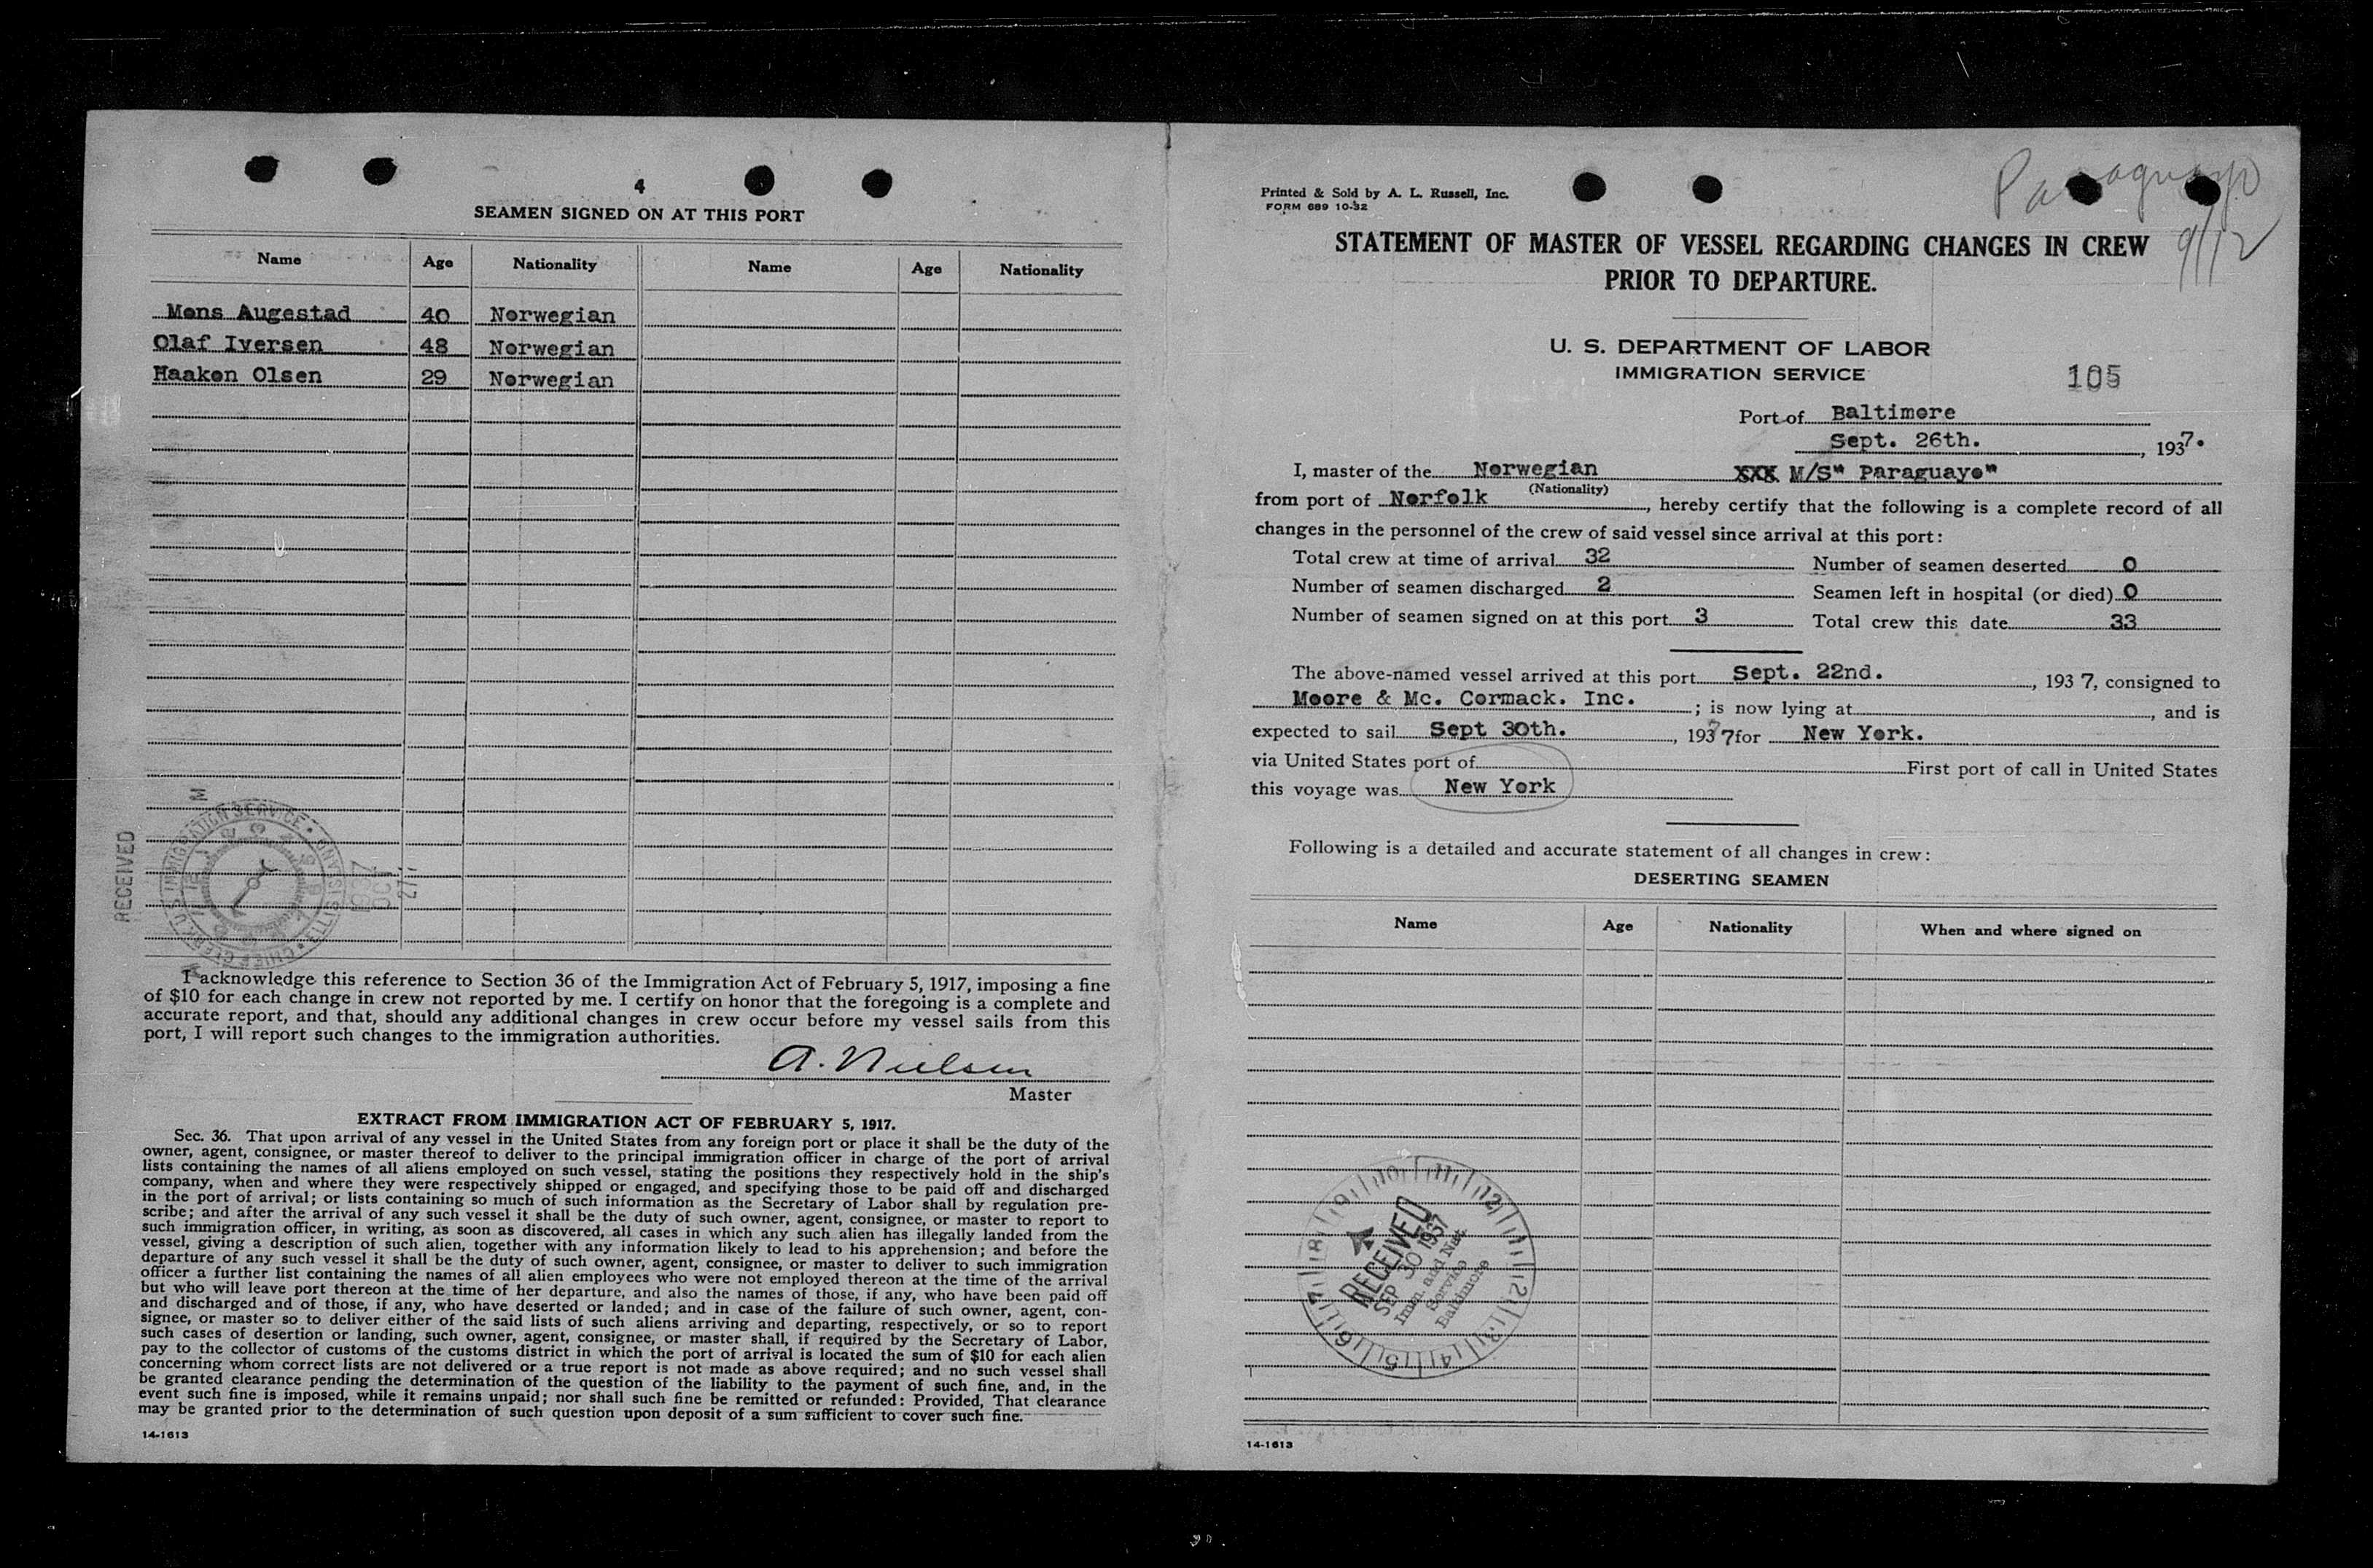 4
SEAMEN SIGNED ON AT THIS PORT
Name Age Nationality Name Age Nationality
Mons Augestad 40 Norwegian
Olaf Iversen 48 Norwegian
Haakon Olsen 29 Norwegian
RECEIVED
I acknowledge this reference to Section 36 of the Immigration Act of February 5, 1917, imposing a fine
of $10 for each change in crew not reported by me. I certify on honor that the foregoing is a complete and
accurate report, and that, should any additional changes in crew occur before my vessel sails from this
port, I will report such changes to the immigration authorities.
A. Nielsen
Master
EXTRACT FROM IMMIGRATION ACT OF FEBRUARY 5, 1917.
Sec. 36. That upon arrival of any vessel in the United States from any foreign port or place it shall be the duty of the
owner, agent, consignee, or master thereof to deliver to the principal immigration officer in charge of the port of arrival
lists containing the names of all aliens employed on such vessel, stating the positions they respectively hold in the ship's
company, when and where they were respectively shipped or engaged, and specifying those to be paid off and discharged
in the port of arrival; or lists containing so much of such information as the Secretary of Labor shall by regulation pre-
scribe; and after the arrival of any such vessel it shall be the duty of such owner, agent, consignee, or master to report to
such immigration officer, in writing, as soon as discovered, all cases in which any such alien has illegally landed from the
vessel, giving a description of such alien, together with any information likely to lead to his apprehension; and before the
departure of any such vessel it shall be the duty of such owner, agent, consignee, or master to deliver to such immigration
officer a further list containing the names of all alien employees who were not employed thereon at the time of the arrival
but who will leave port thereon at the time of her departure, and also the names of those, if any, who have been paid off
and discharged and of those, if any, who have deserted or landed; and in case of the failure of such owner, agent, con-
signee, or master so to deliver either of the said lists of such aliens arriving and departing, respectively, or so to report
such cases of desertion or landing, such owner, agent, consignee, or master shall, if required by the Secretary of Labor,
pay to the collector of customs of the customs district in which the port of arrival is located the sum of $10 for each alien
concerning whom correct lists are not delivered or a true report is not made as above required; and no such vessel shall
be granted clearance pending the determination of the question of the liability to the payment of such fine, and, in the
event such fine is imposed, while it remains unpaid; nor shall such fine be remitted or refunded: Provided, That clearance
may be granted prior to the determination of such question upon deposit of a sum sufficient to cover such fine.
14-1613
Paraguayo
9/12
Printed & Sold by A. L. Russell, Inc.
FORM 689 10-32
STATEMENT OF MASTER OF VESSEL REGARDING CHANGES IN CREW
PRIOR TO DEPARTURE.
U. S. DEPARTMENT OF LABOR
IMMIGRATION SERVICE
105
Port of Baltimore
Sept. 26th. , 1937.
I, master of the Norwegian XXX M/S" Paraguayo"
(Nationality)
from port of Norfolk , hereby certify that the following is a complete record of all
changes in the personnel of the crew of said vessel since arrival at this port:
Total crew at time of arrival 32 Number of seamen deserted 0
Number of seamen discharged 2 Seamen left in hospital (or died) 0
Number of seamen signed on at this port 3 Total crew this date 33
The above-named vessel arrived at this port Sept. 22nd. , 193 7, consigned to
Moore & Mc. Cormack. Inc. ; is now lying at , and is
expected to sail Sept 30th. , 193 7 for New York.
via United States port of First port of call in United States
this voyage was New York
Following is a detailed and accurate statement of all changes in crew:
DESERTING SEAMEN
Name Age Nationality When and where signed on
RECEIVED
SEP 30 1937
Imm. and Nat.
Service
Baltimore
14-1613